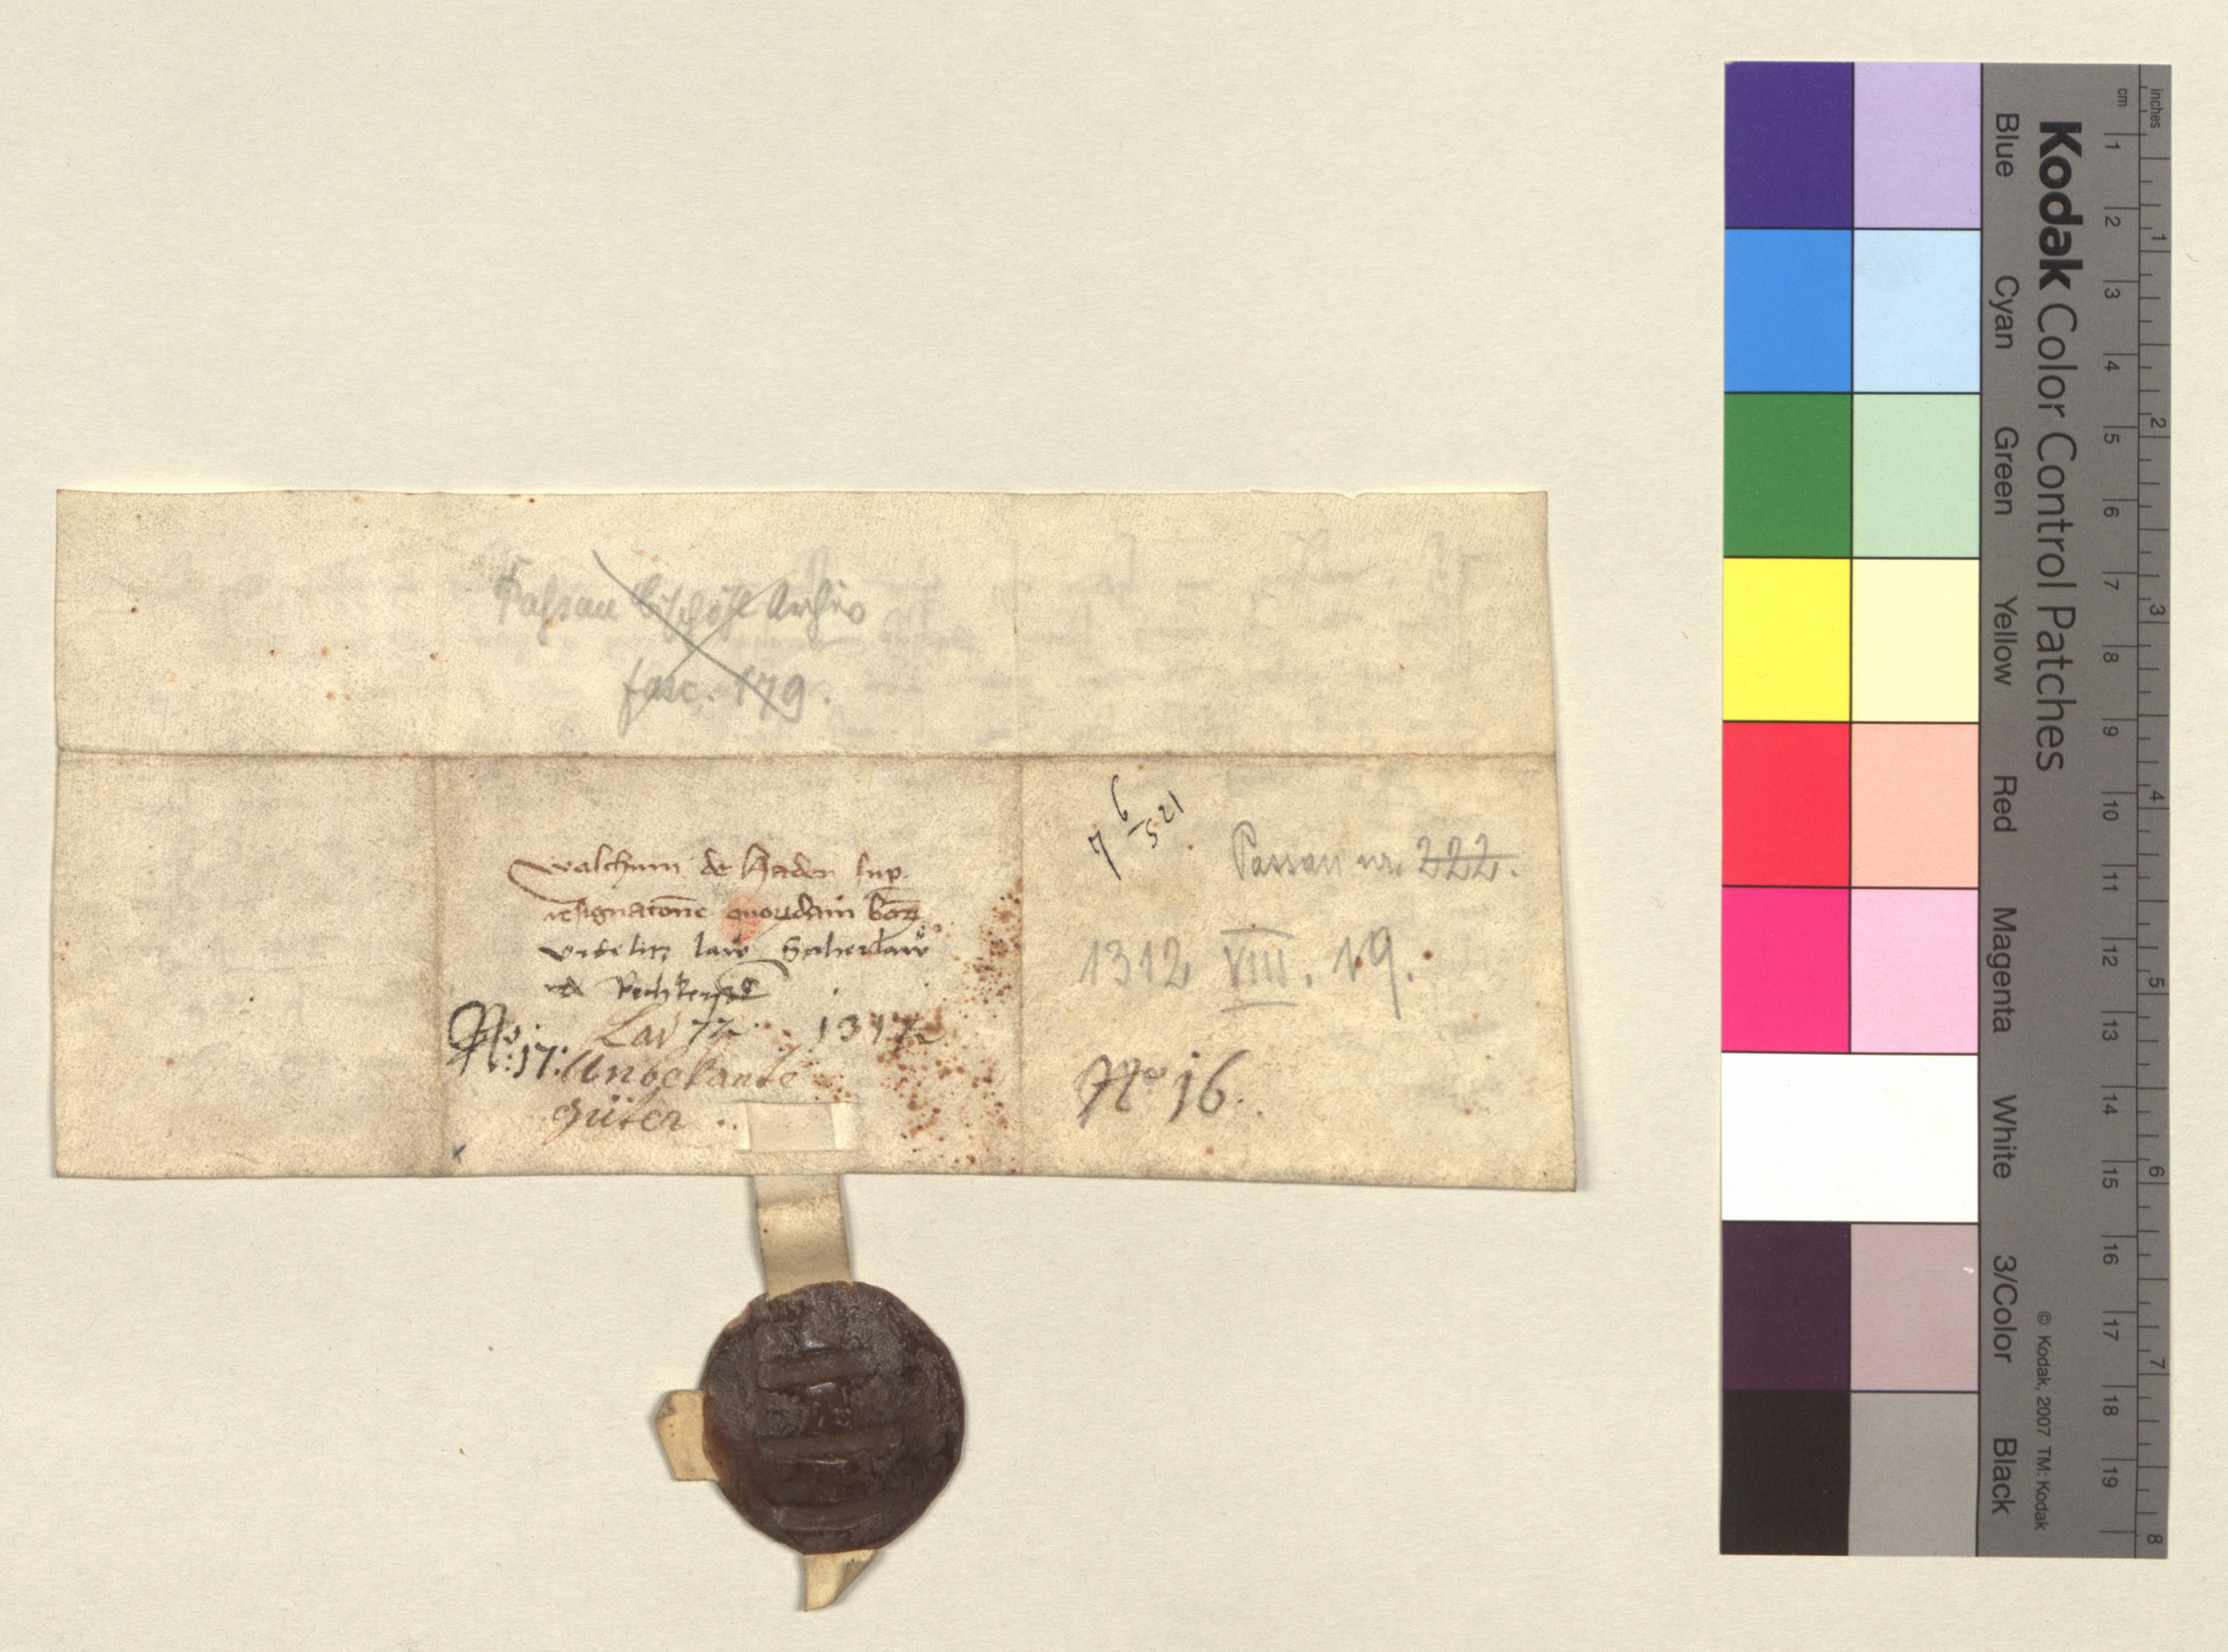 Passau bischöfl Archiv
fasc. 179.
walchum de Haden sup
resignatone quorzdam bonorz
law
No: 17:
Lad 72
1312
Unbekante
Güter
7 6/5 21
Passau nr. 222.
1312 VIII. 19.
No 16.
Kodak Color Control Patches
Blue Cyan Green Yellow Red Magenta White 3/Color Black
© Kodak, 2007 TM: Kodak
cm 1 2 3 4 5 6 7 8 9 10 11 12 13 14 15 16 17 18 19
inches 1 2 3 4 5 6 7 8